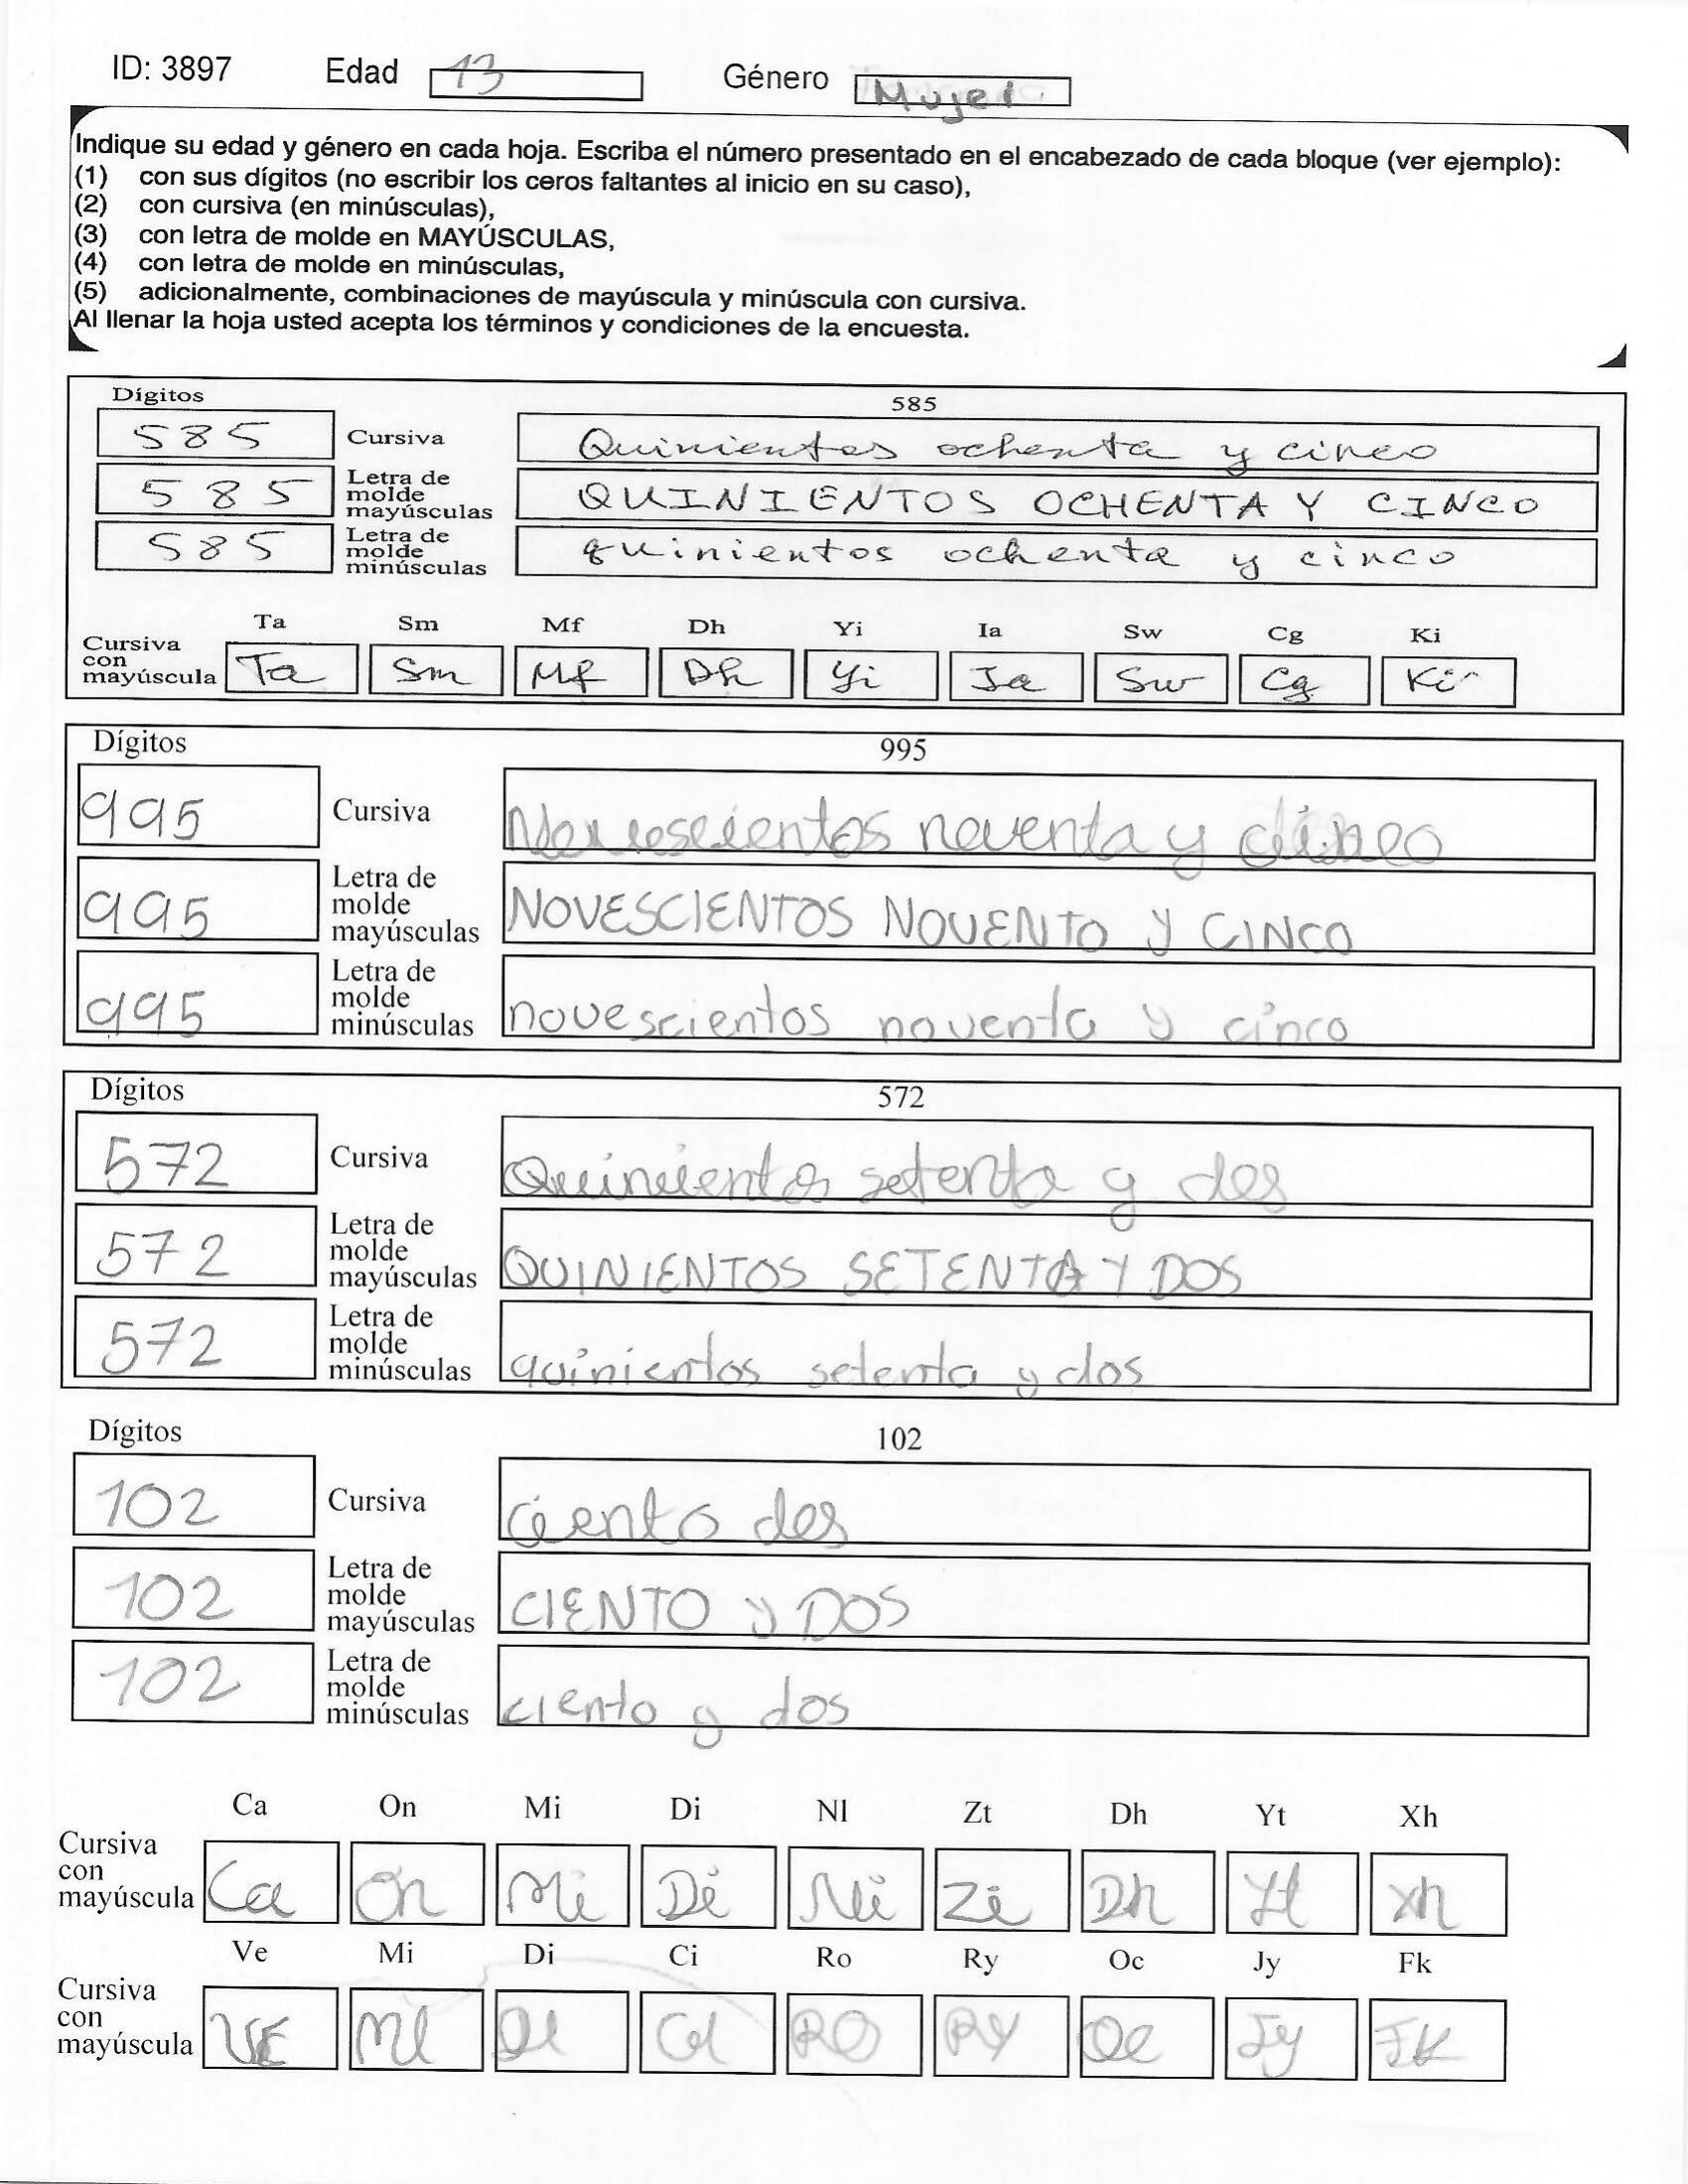 ID: 3897 Edad 13 Género Mujer
Indique su edad y género en cada hoja. Escriba el número presentado en el encabezado de cada bloque (ver ejemplo):
(1) con sus dígitos (no escribir los ceros faltantes al inicio en su caso),
(2) con cursiva (en minúsculas),
(3) con letra de molde en MAYÚSCULAS,
(4) con letra de molde en minúsculas,
(5) adicionalmente, combinaciones de mayúscula y minúscula con cursiva.
Al llenar la hoja usted acepta los términos y condiciones de la encuesta.
Dígitos 585
585 Cursiva Quinientos ochenta y cinco
585 Letra de molde mayúsculas QUINIENTOS OCHENTA Y CINCO
585 Letra de molde minúsculas quinientos ochenta y cinco
Ta Sm Mf Dh Yi Ia Sw Cg Ki
Cursiva con mayúscula Ta Sm Mf Dh Yi Ia Sw Cg Ki
Dígitos 995
995 Cursiva noventa y cinco
995 Letra de molde mayúsculas NOVESCIENTOS NOVENTO Y CINCO
995 Letra de molde minúsculas novescientos noventa y cinco
Dígitos 572
572 Cursiva Quinientos setenta y dos
572 Letra de molde mayúsculas QUINIENTOS SETENTA Y DOS
572 Letra de molde minúsculas quinientos setenta y dos
Dígitos 102
102 Cursiva ciento dos
102 Letra de molde mayúsculas CIENTO y DOS
102 Letra de molde minúsculas ciento y dos
Ca On Mi Di Nl Zt Dh Yt Xh
Cursiva con mayúscula Ca On Mi Di Ni Zi Dh Yt Xh
Ve Mi Di Ci Ro Ry Oc Jy Fk
Cursiva con mayúscula VE Mi Di Ci RO RY Oc Jy FK